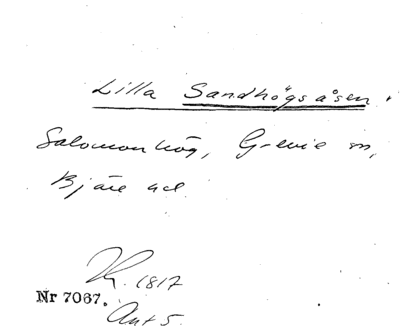 Lilla Sandhögsåsen.
Salomonhög, Grevie sn,
Bjäre hd
1817
Nr 7067.
Ant 5.